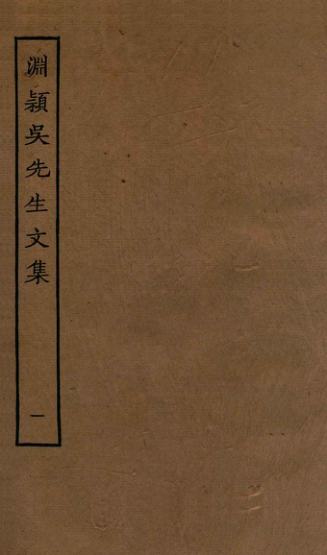 淵穎吳先生文集
一